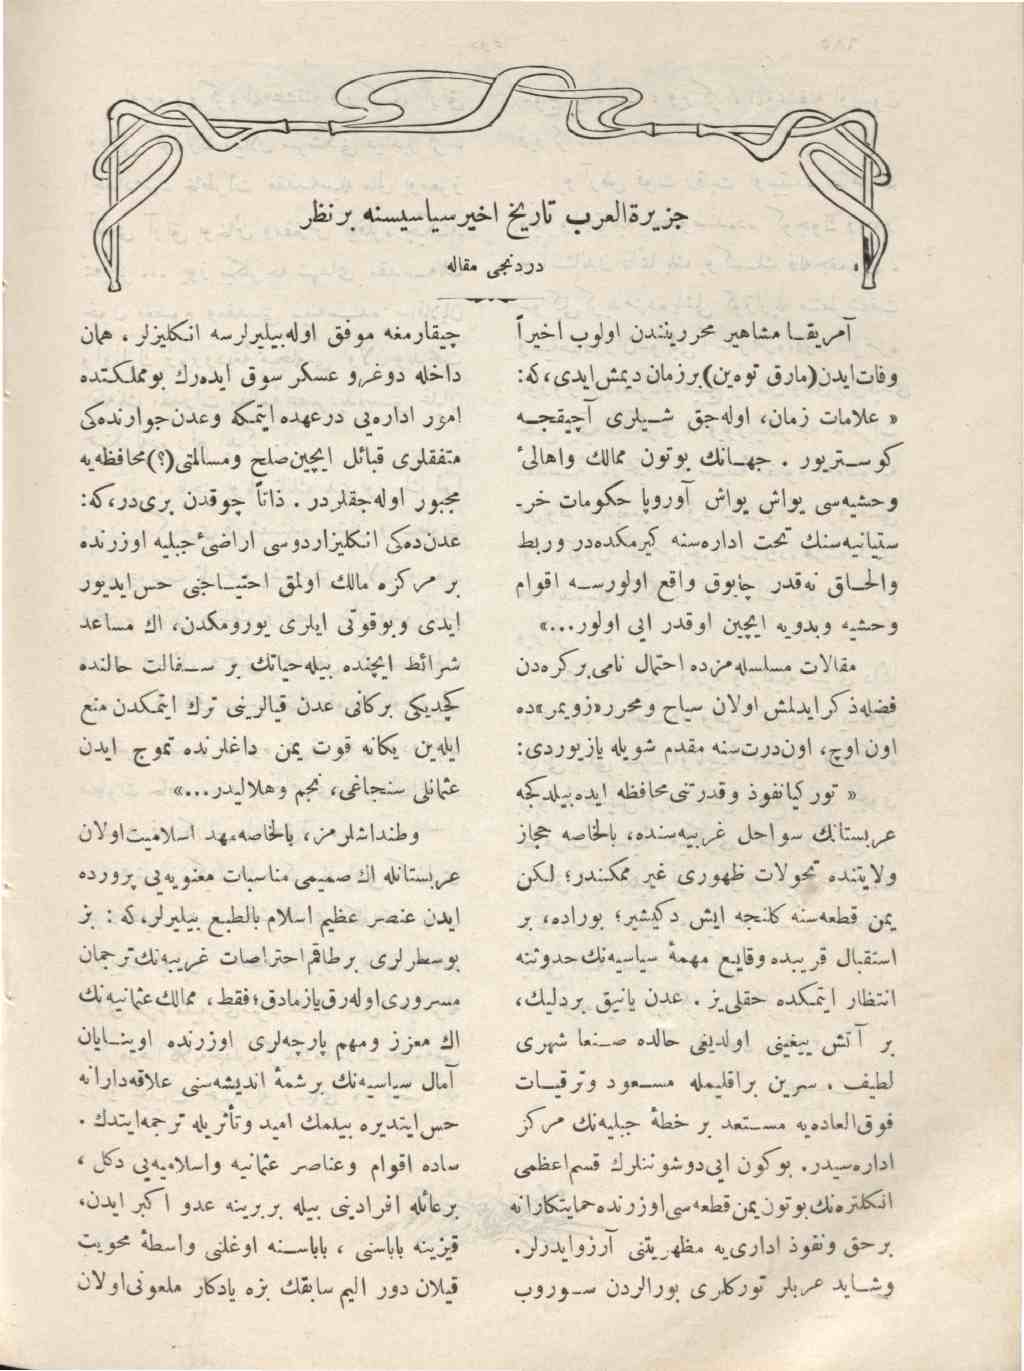 جزيرةالعرب تاريخ اخيرسياسيسنه بر نظر
دردنجى مقاله
آمريقا مشاهير محررينندن اولوب اخيراً
وفات‌ايدن(مارق توه‌ين)برزمان ديمش‌ايدى،كه:
« علامات زمان، اوله‌جق شيلرى آچيقجه
كوستريور . جهانك بوتون ممالك واهالئ
وحشيه‌سى يواش يواش آوروپا حكومات خر-
ستيانيه‌سنك تحت اداره‌سنه كيرمكده‌در وربط
والحاق نه‌قدر چابوق واقع اولورسه اقوام
وحشيه وبدويه ايچين اوقدر ايى اولور...»
مقالات مسلسله‌مزده احتمال نامى بركره‌دن
فضله‌ذكرايدلمش اولان سياح ومحرر«زويمر»ده
اون اوچ، اون‌درت‌سنه مقدم شويله يازيوردى:
« توركيانفوذ وقدرتنى‌محافظه ايده‌بيلدكجه
عربستانك سواحل غربيه‌سنده، بالخاصه حجاز
ولايتنده تحولات ظهورى غير ممكندر؛ لكن
يمن قطعه‌سنه كلنجه ايش دكيشير؛ بوراده، بر
استقبال قريبده وقايع مهمهٔ سياسيه‌نك‌حدوثنه
انتظار ايتمكده حقلى‌يز . عدن يانيق بردليك،
بر آتش ييغينى اولديغى حالده صنعا شهرى
لطيف ، سرين براقليمله مسعود وترقيات
فوق‌العاده‌يه مستعد بر خطهٔ جبليه‌نك مركز
اداره‌سيدر. بوكون ايى‌دوشوننلرك قسم‌اعظمى
انكلتره‌نك‌بوتون‌يمن‌قطعه‌سى‌اوزرنده‌حمايتكارانه
برحق ونفوذ ادارى‌يه مظهريتنى آرزوايدرلر.
وشايد عربلر توركلرى بورالردن سوروب
چيقارمغه موفق اوله‌بيليرلرسه انكليزلر ، همان
داخله دوغرو عسكر سوق ايده‌رك بومملكتده
امور اداره‌يى درعهده ايتمكه وعدن‌جوارنده‌كى
متفقلرى قبائل ايچين‌صلح ومسالمتى(؟)محافظه‌يه
مجبور اوله‌جقلردر . ذاتاً چوقدن برى‌در،كه:
عدن‌ده‌كى انكليزاردوسى اراضئ‌جبليه اوزرنده
بر مركزه مالك اولمق احتياجنى حس‌ايديور
ايدى وبوقوتى ايلرى يورومكدن، اك مساعد
شرائط ايچنده بيله‌حياتك بر سفالت حالنده
كچديكى بركانى عدن قيالرينى ترك ايتمكدن منع
ايله‌ين يكانه قوت يمن داغلرنده تموج ايدن
عثمانلى سنجاغى، نجم وهلاليدر...»
وطنداشلرمز، بالخاصه‌مهد اسلاميت‌اولان
عربستانله اك صميمى مناسبات معنويه‌يى پرورده
ايدن عنصر عظيم اسلام بالطبع بيليرلر،كه : بز
بوسطرلرى برطاقم‌احتراصات غريبه‌نك‌ترجمان
مسرورى‌اوله‌رق‌يازمادق؛فقط، ممالك‌عثمانيه‌نك
اك معزز ومهم پارچه‌لرى اوزرنده اوينايان
آمال سياسيه‌نك برشمهٔ انديشه‌سنى علاقه‌دارانه
حس‌ايتديره بيلمك اميد وتأثريله ترجمه‌ايتدك .
ساده اقوام وعناصر عثمانيه واسلاميه‌يى دكل ،
برعائله افرادينى بيله بربرينه عدو اكبر ايدن،
قيزينه باباسنى ، باباسنه اوغلنى واسطهٔ محويت
قيلان دور اليم سابقك بزه يادكار ملعونى‌اولان